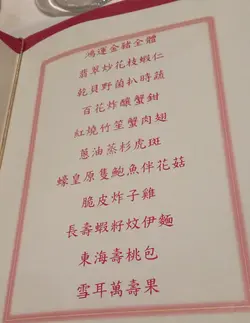 鴻運金豬全體
翡翠炒花枝蝦仁
乾貝野菌扒時蔬
百花炸釀蟹鉗
紅燒竹笙蟹肉翅
蔥油蒸杉虎斑
蠔皇原隻鮑魚伴花菇
脆皮炸子雞
長壽蝦籽炆伊麵
東海壽桃包
雪耳萬壽果